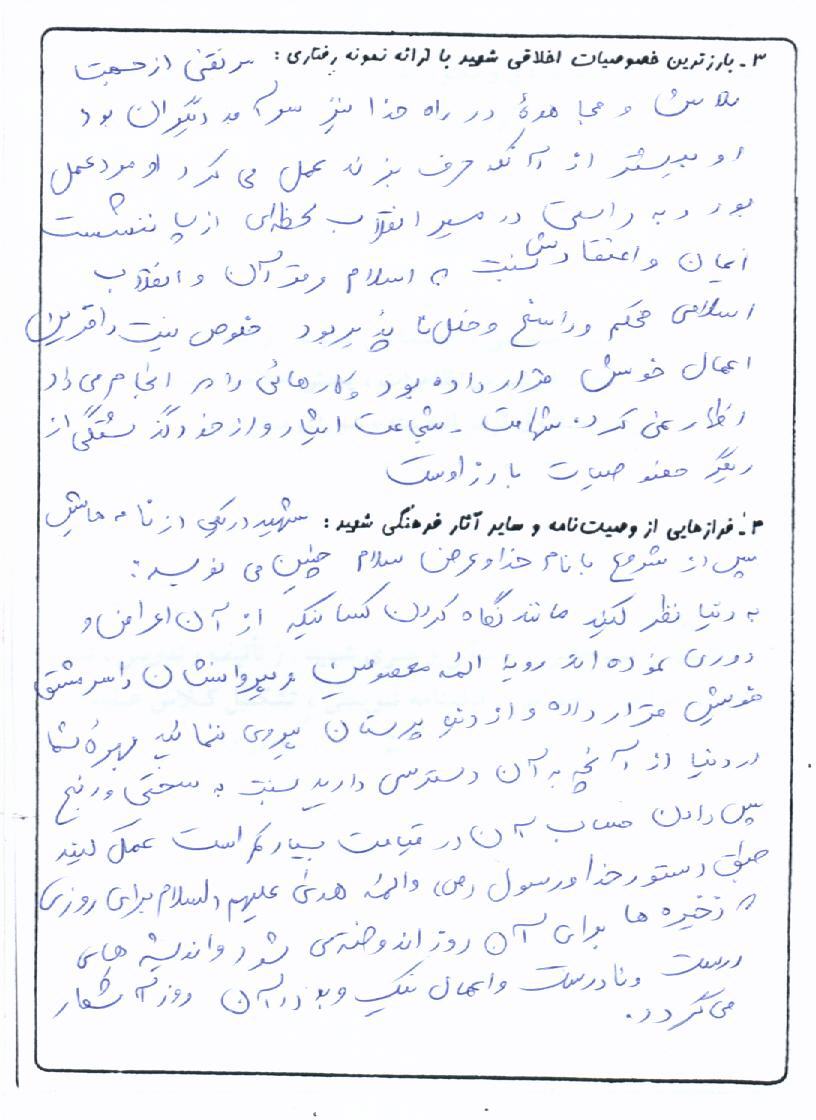 ۳ - بارزترین خصوصیات اخلاقی شهید با ارائه نمونه رفتاری : مرتضی از حیث
تلاش و مجاهدهٔ در راه خدا نیز سرآمد دیگران بود
او بیشتر از آنکه حرف بزند عمل می کرد او مرد عمل
بود و به راستی در مسیر انقلاب لحظه‌ای از پا ننشست
ایمان و اعتقادش نسبت به اسلام و قرآن و انقلاب
اسلامی محکم و راسخ و خلل نا پذیر بود خلوص نیت را قرین
اعمال خویش قرار داده بود و کارهائی را که انجام می داد
اظهار نمی کرد. شهامت - شجاعت ایثار و از خود گذشتگی از
دیگر خصوصیات بارز اوست
۴ - فرازهایی از وصیت‌نامه و سایر آثار فرهنگی شهید : شهید در یکی از نامه هایش
پس از شروع با نام خدا و عرض سلام چنین می نویسد :
به دنیا نظر کنید مانند نگاه کردن کسانیکه از آن اعراض و
دوری نموده اند رویهٔ ائمه معصومین و پیروانشان را سرمشق
خویش قرار داده و از دنیا پرستان پیروی ننمائید بهرهٔ شما
در دنیا از آنچه به آن دسترسی دارید نسبت به سختی و رنج
پس دادن حساب آن در قیامت بسیار کم است عمل کنید
طبق دستور خدا و رسول (ص) و ائمه هدی علیهم السلام برای روزی
که ذخیره ها برای آن روز اندوخته می شود و اندیشه های
درست و نادرست و اعمال نیک و بد در آن روز آشکار
می گردد.